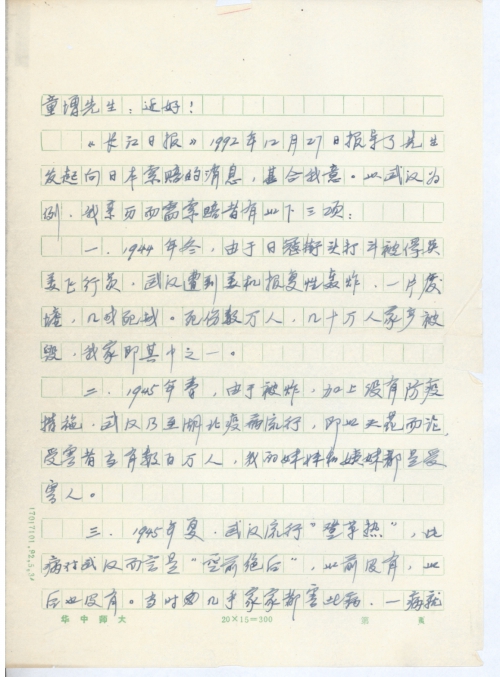 童增先生：近好！
《长江日报》1992年12月27日报导了先生
发起向日本索赔的消息，甚合我意。以武汉为
例，我亲历而需索赔者有以下三项：
一．1944年冬，由于日寇街头打斗被俘兵
美飞行员，武汉遭到美机报复性轰炸．一片废
墟，几成死城。死伤数万人，几十万人家产被
毁，我家即其中之一。
二．1945年春，由于被炸，加上没有防疫
措施．武汉乃至湖北疫病流行，即以天花而论，
受害者当有数百万人，我的妹妹和姨妹都是受
害人。
三．1945年夏．武汉流行“登革热”，此
病对武汉而言是“空前绝后”，此前没有，此
后也没有。当时几乎家家都害此病．一病就
华中师大
20×15=300
第 页